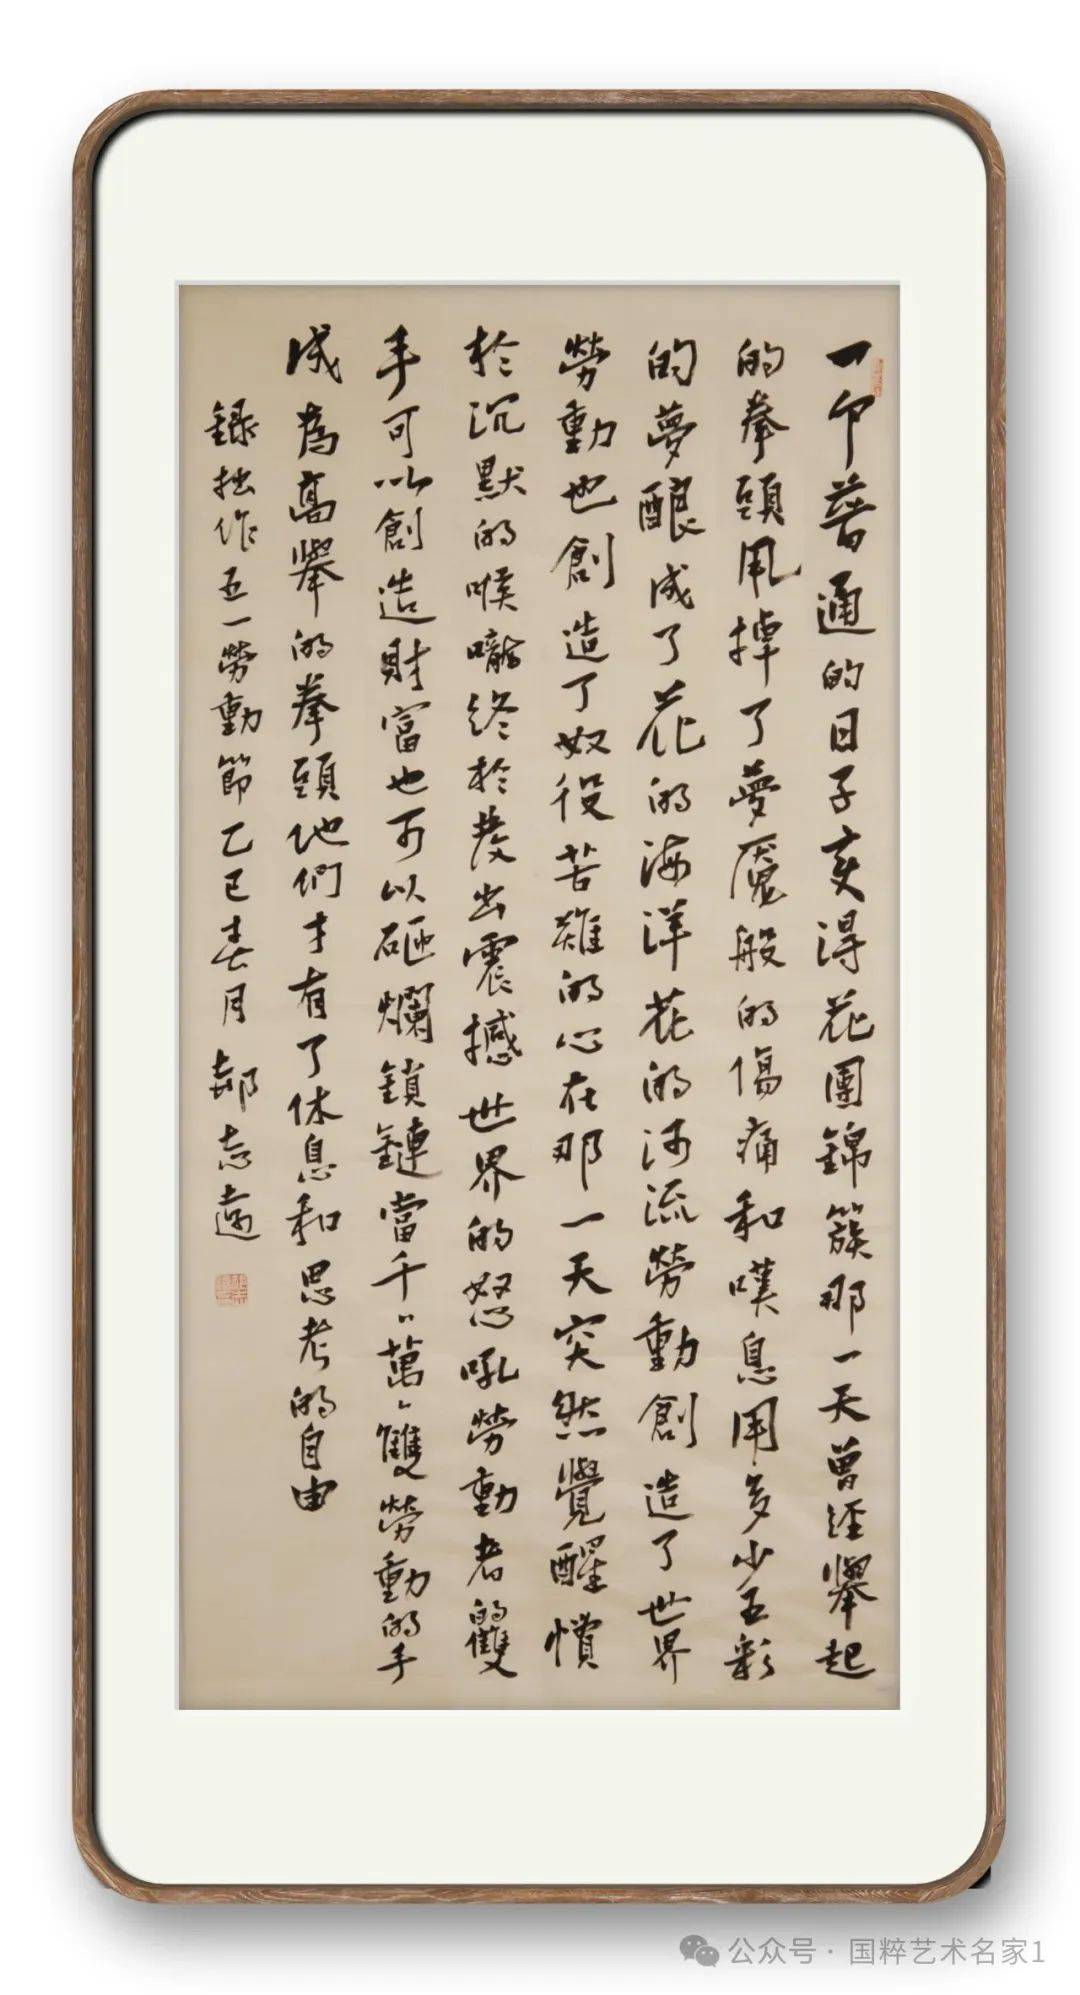 一个普通的日子變得花團錦簇那一天曾經舉起
的拳頭甩掉了夢魘般的傷痛和嘆息用多少五彩
的夢釀成了花的海洋花的河流勞動創造了世界
勞動也創造了奴役苦難的心在那一天突然覺醒慣
於沉默的喉嚨終於發出震撼世界的怒吼勞動者的雙
手可以創造財富也可以砸爛鎖鏈當千千萬萬雙勞動的手
成為高舉的拳頭他們才有了休息和思考的自由
錄拙作五一勞動節乙巳春月郝志遠
公众号·国粹艺术名家1